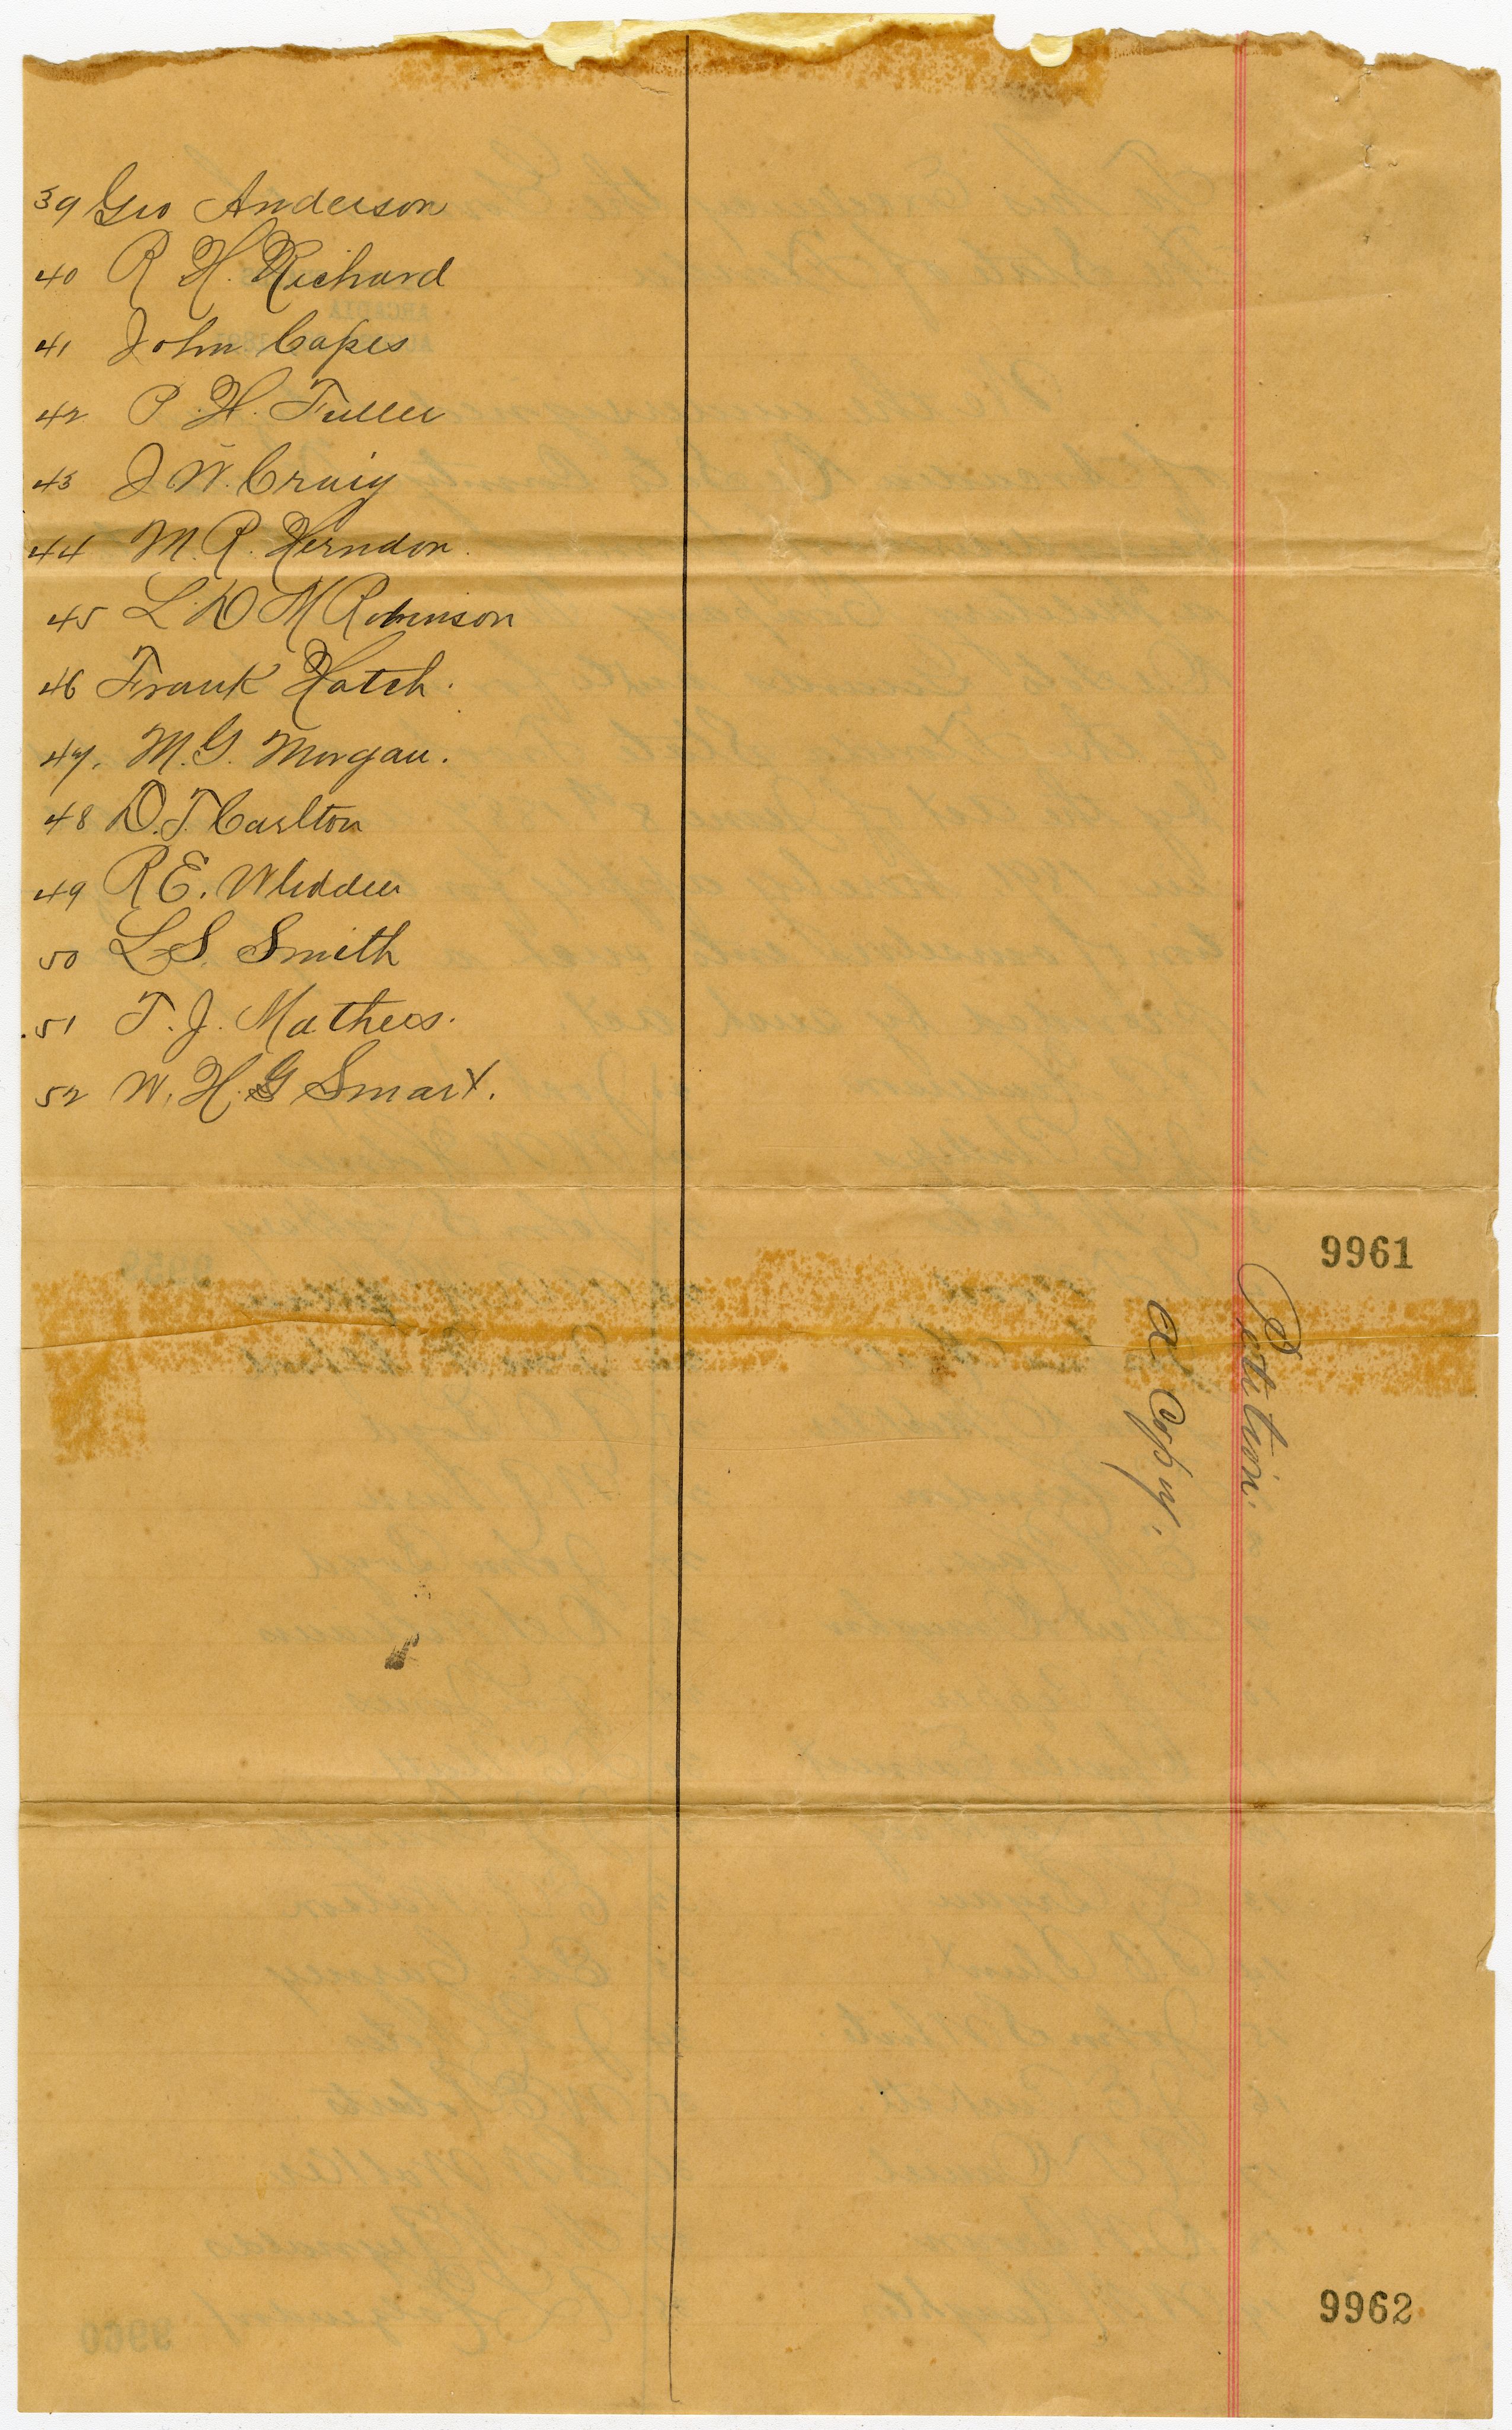 39 Geo Anderson
40 R H. Richard
41 John Capes
42 P. H. Fuller
43 J W. Craig
44 M. R. Herndon.
45 L D M Robinson
46 Frank Hatch.
47. M. G. Morgan.
48 D. T. Carlton
49 R E. Whidden
50 L S. Smith
51 T. J. Mathews.
52 W. H. G Smart.
9961
Petition.
A Copy.
9962